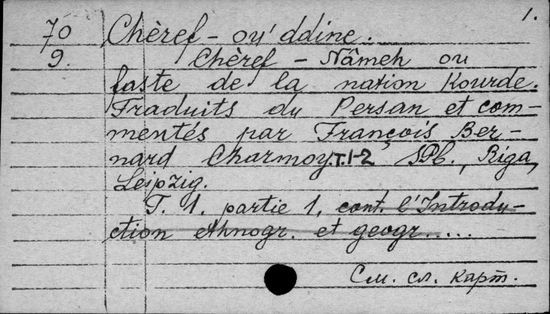 1.
70 Chèref-ou'ddine.
9. Chèref-Nâmeh ou
faste de la nation Kourde.
Traduits du Persan et com-
mentés par François Ber-
nard Charmoy. T.1-2 SPb., Riga,
Leipzig.
T. 1. partie 1, cont. l'Introdu-
ction ethnogr. et geogr.....
См. сл. карт.